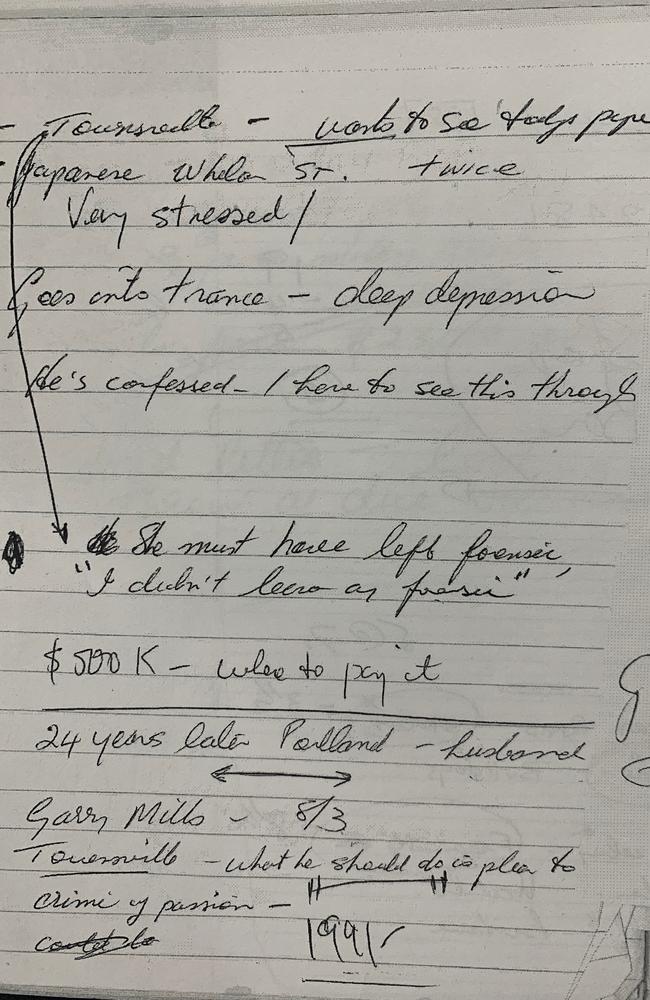 - Townsville - wants to see today's pape
- Japanese Whaler St. twice
Very stressed /
Goes into trance - deep depression
He's confessed - I have to see this through
She must have left forensic,
"I didn't leave any forensic"
$500 K - who to pay it
24 years later Portland - husband
Garry Mills - 8/3
Townsville - what he should do is plea to
crime of passion -
1991